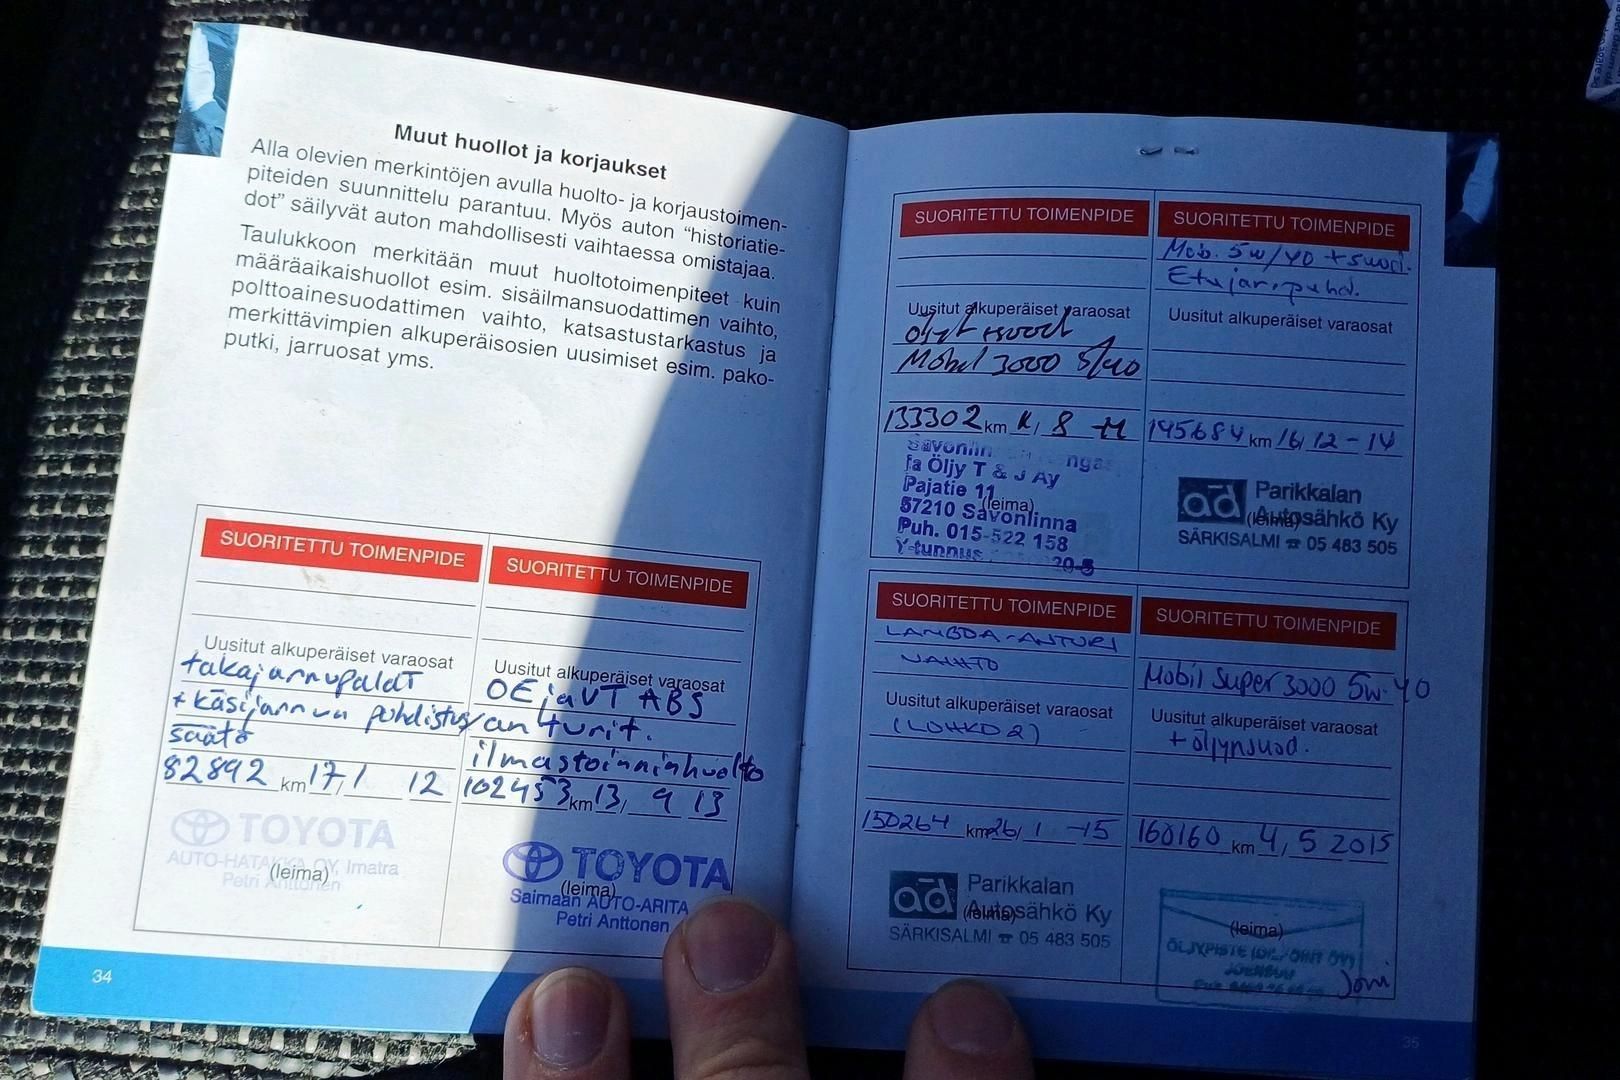 Muut huollot ja korjaukset
Alla olevien merkintöjen avulla huolto- ja korjaustoimen-
piteiden suunnittelu parantuu. Myös auton "historiatie-
dot" säilyvät auton mahdollisesti vaihtaessa omistajaa.
Taulukkoon merkitään muut huoltotoimenpiteet kuin
määräaikaishuollot esim. sisäilmansuodattimen vaihto,
polttoainesuodattimen vaihto, katsastustarkastus ja
merkittävimpien alkuperäisosien uusimiset esim. pako-
putki, jarruosat yms.
SUORITETTU TOIMENPIDE
Uusitut alkuperäiset varaosat
takajarrupalat
+ käsijarrun puhdistus/
säätö
82892 km 17/1 12
TOYOTA
AUTO-HATAKKA OY, Imatra
(leima)
Petri Anttonen
SUORITETTU TOIMENPIDE
Uusitut alkuperäiset varaosat
OE ja VT ABS
anturit.
ilmastoinninhuolto
102453 km 13, 9 13
TOYOTA
(leima)
Saimaan AUTO-ARITA
Petri Anttonen
34
SUORITETTU TOIMENPIDE
Uusitut alkuperäiset varaosat
Mobil 3000 5/40
133302 km 8
ja Öljy T & J Ay
Pajatie 11
(leima)
57210 Savonlinna
Puh. 015-522 158
Y-tunnus
SUORITETTU TOIMENPIDE
Mob. 5w/40 + suod.
Etujarr.puhd.
Uusitut alkuperäiset varaosat
145684 km 16/12-14
ad Parikkalan
(leima) Autosähkö Ky
SÄRKISALMI ☎ 05 483 505
SUORITETTU TOIMENPIDE
LAMBDA-ANTURI
VAIHTO
Uusitut alkuperäiset varaosat
(LOHKO 2)
150264 km 26/1 -15
ad Parikkalan
(leima) Autosähkö Ky
SÄRKISALMI ☎ 05 483 505
SUORITETTU TOIMENPIDE
Mobil Super 3000 5w-40
Uusitut alkuperäiset varaosat
+ öljynsuod.
160160 km 4, 5 2015
(leima)
ÖLJYPISTE
JOENSUU
Joni
35